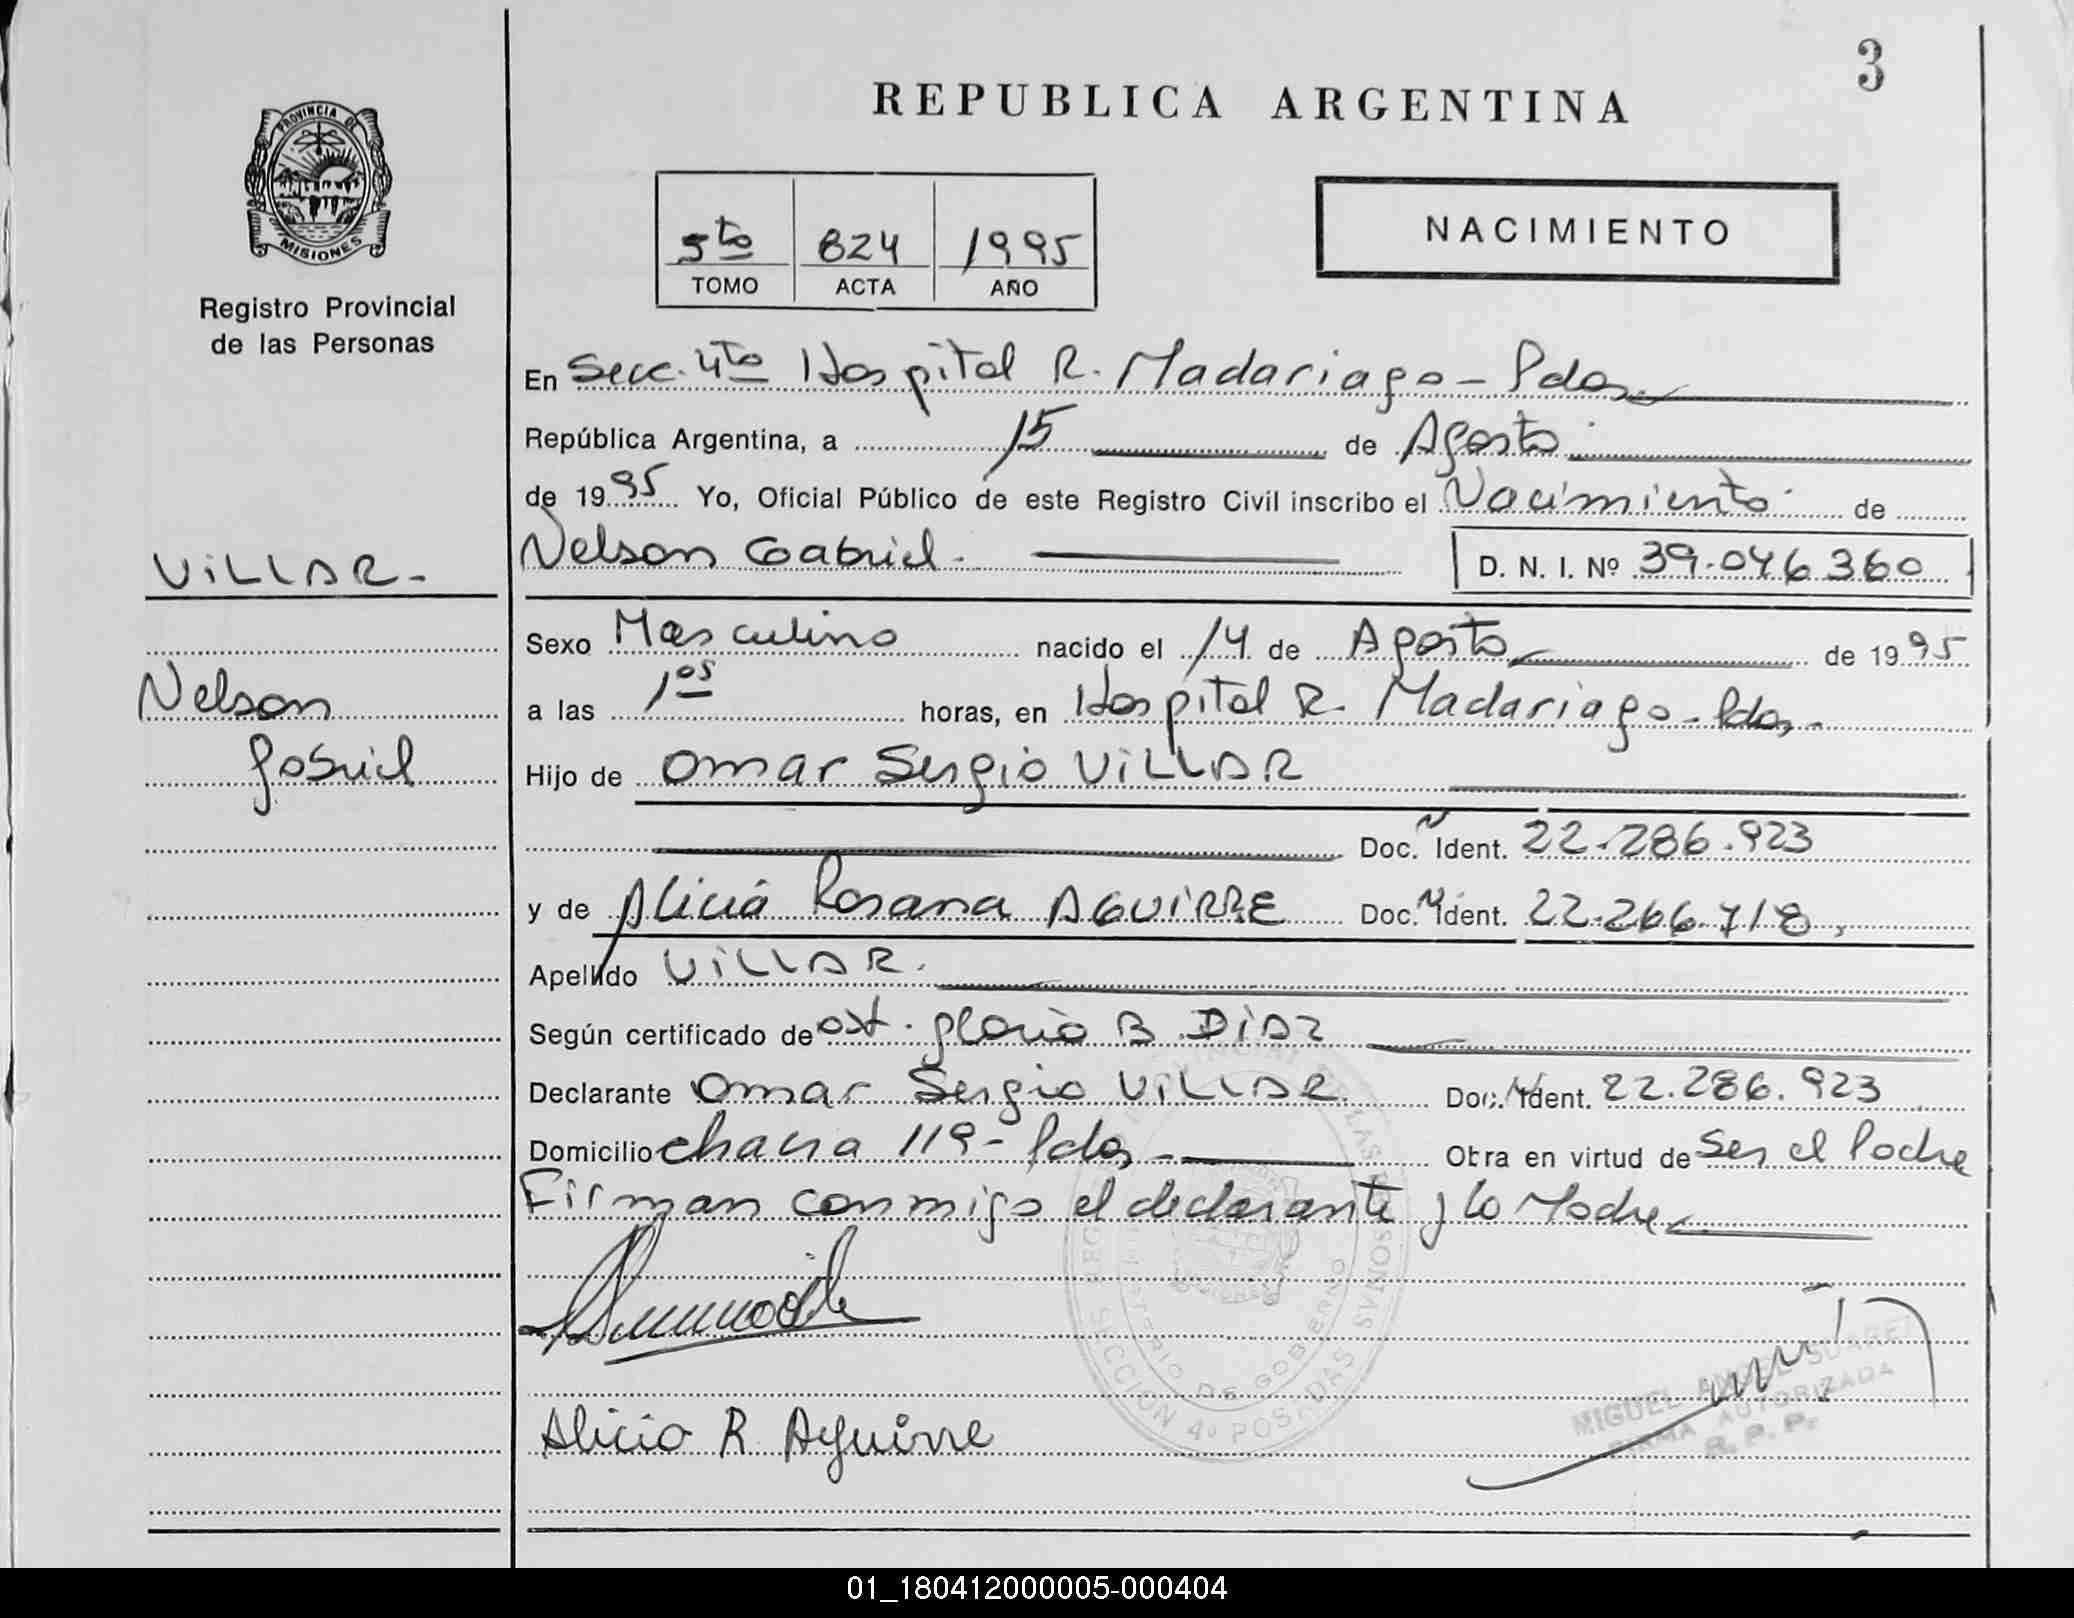 3
REPUBLICA ARGENTINA
PROVINCIA DE
MISIONES
Registro Provincial
de las Personas
5to 824 1995
TOMO ACTA AÑO
NACIMIENTO
En Secc. 4to Hospital R. Madariaga - Pdas
República Argentina, a 15 de Agosto
de 1995 Yo, Oficial Público de este Registro Civil inscribo el Nacimiento de
VILLAR -
Nelson Gabriel. D. N. I. Nº 39.046.360
Sexo Masculino nacido el 14 de Agosto de 1995
Nelson
Gabriel
a las 1 05 horas, en Hospital R. Madariaga - Pdas -
Hijo de Omar Sergio VILLAR
Doc. N Ident. 22.286.923
y de Alicia Rosana AGUIRRE Doc. N Ident. 22.266.718
Apellido VILLAR.
Según certificado de obst. Gloria B DIAZ
Declarante Omar Sergio VILLAR Doc. N Ident. 22.286.923
Domicilio chacra 119 - Pdas - Obra en virtud de Ser el Padre
Firman conmigo el declarante y la Madre
Alicia R Aguirre
MIGUEL ANGEL SUAREZ
FIRMA AUTORIZADA
R. P. P.
SECCION 4º POSADAS
MINISTERIO DE GOBIERNO
01_180412000005-000404